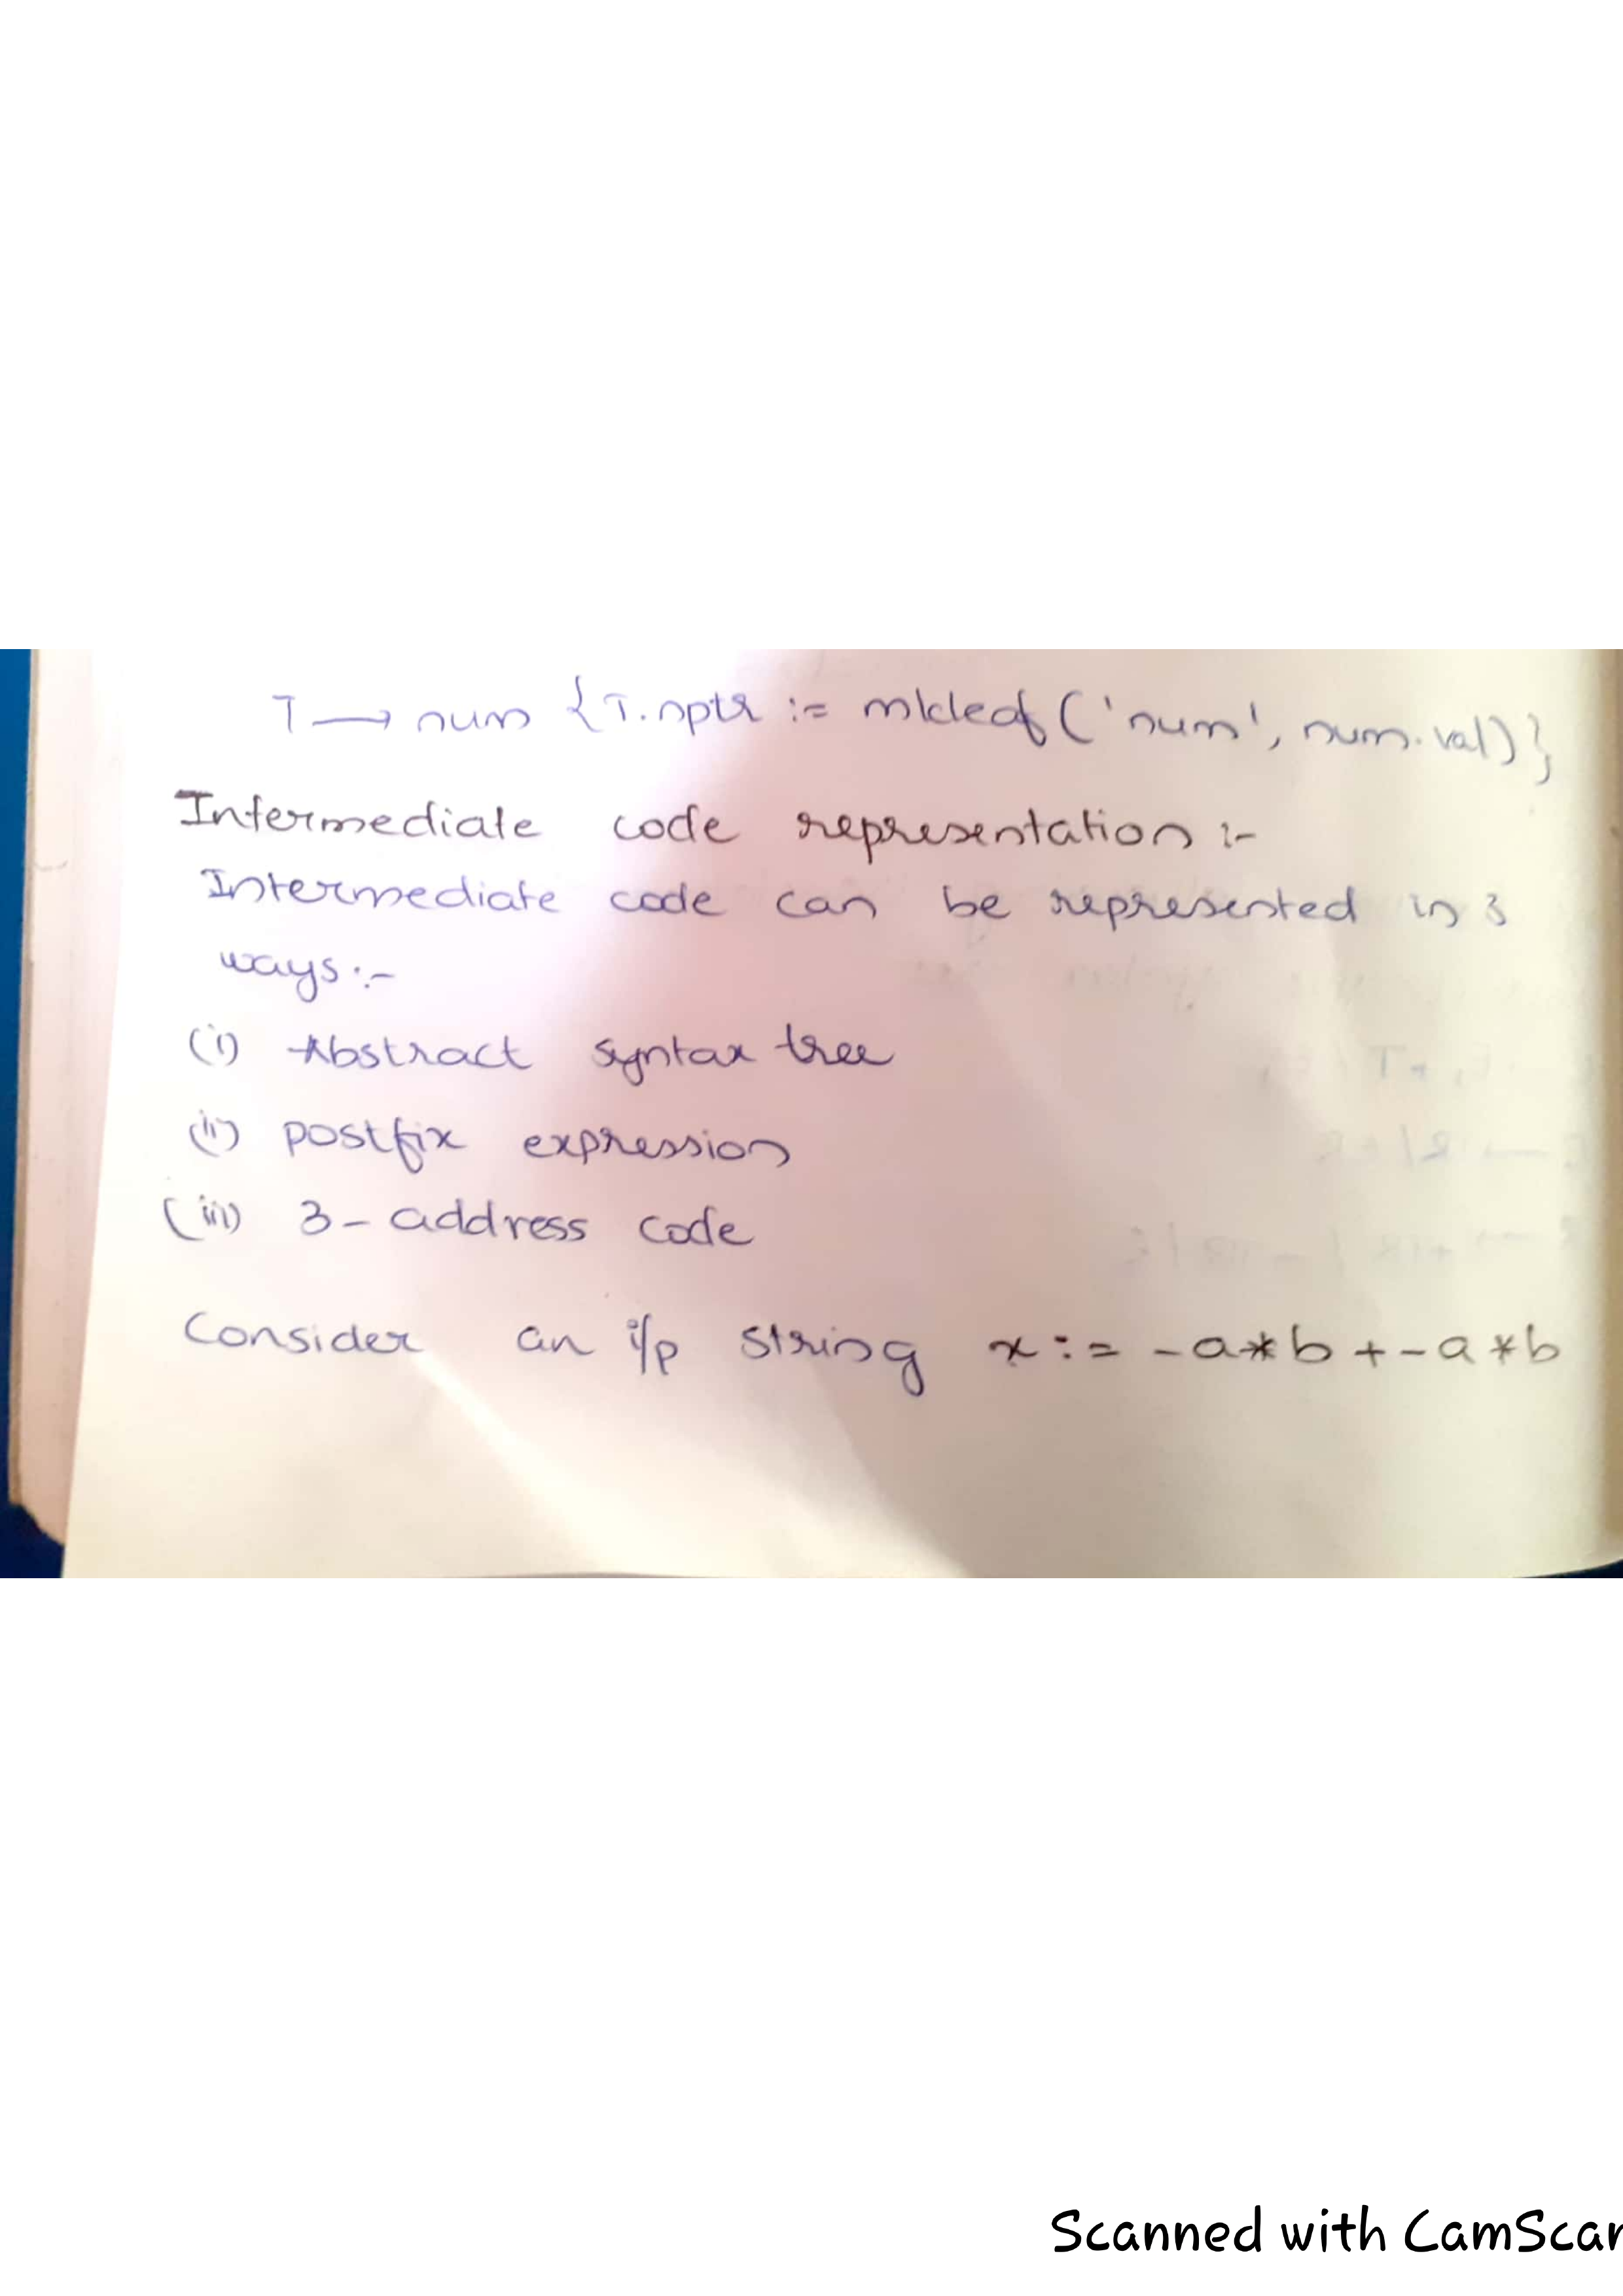 T → num {T.nptr := mkleaf ('num', num.val)}
Intermediate code representation :-
Intermediate code can be represented in 3
ways :-
(i) Abstract syntax tree
(ii) postfix expression
(iii) 3-address code
Consider an i/p string x := -a*b + -a*b
Scanned with CamScan